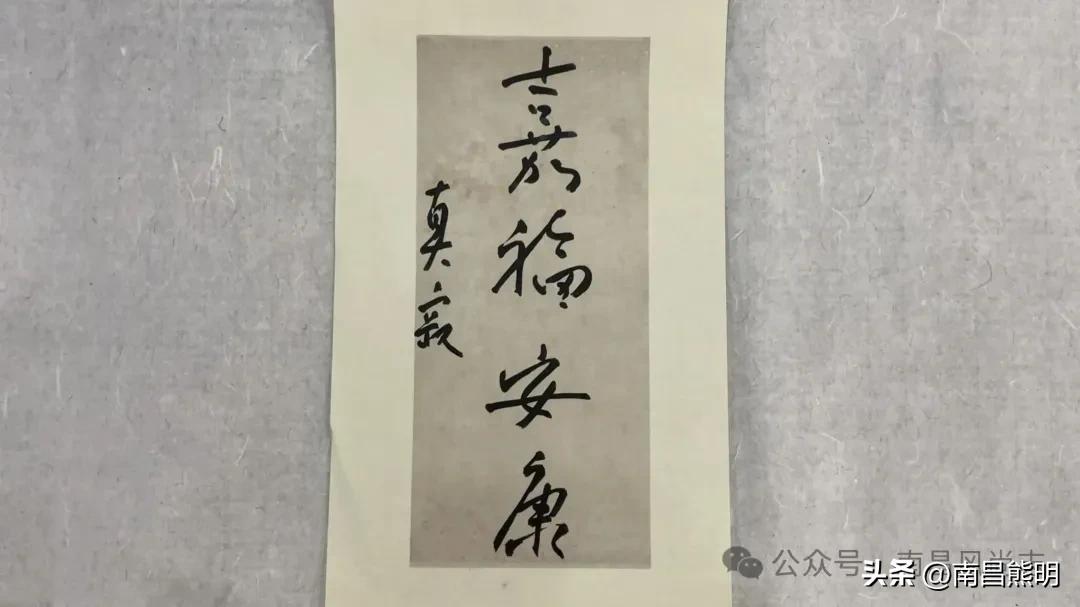 嘉福安康
真寂
公众号 南昌风尚志
头条 @南昌熊明